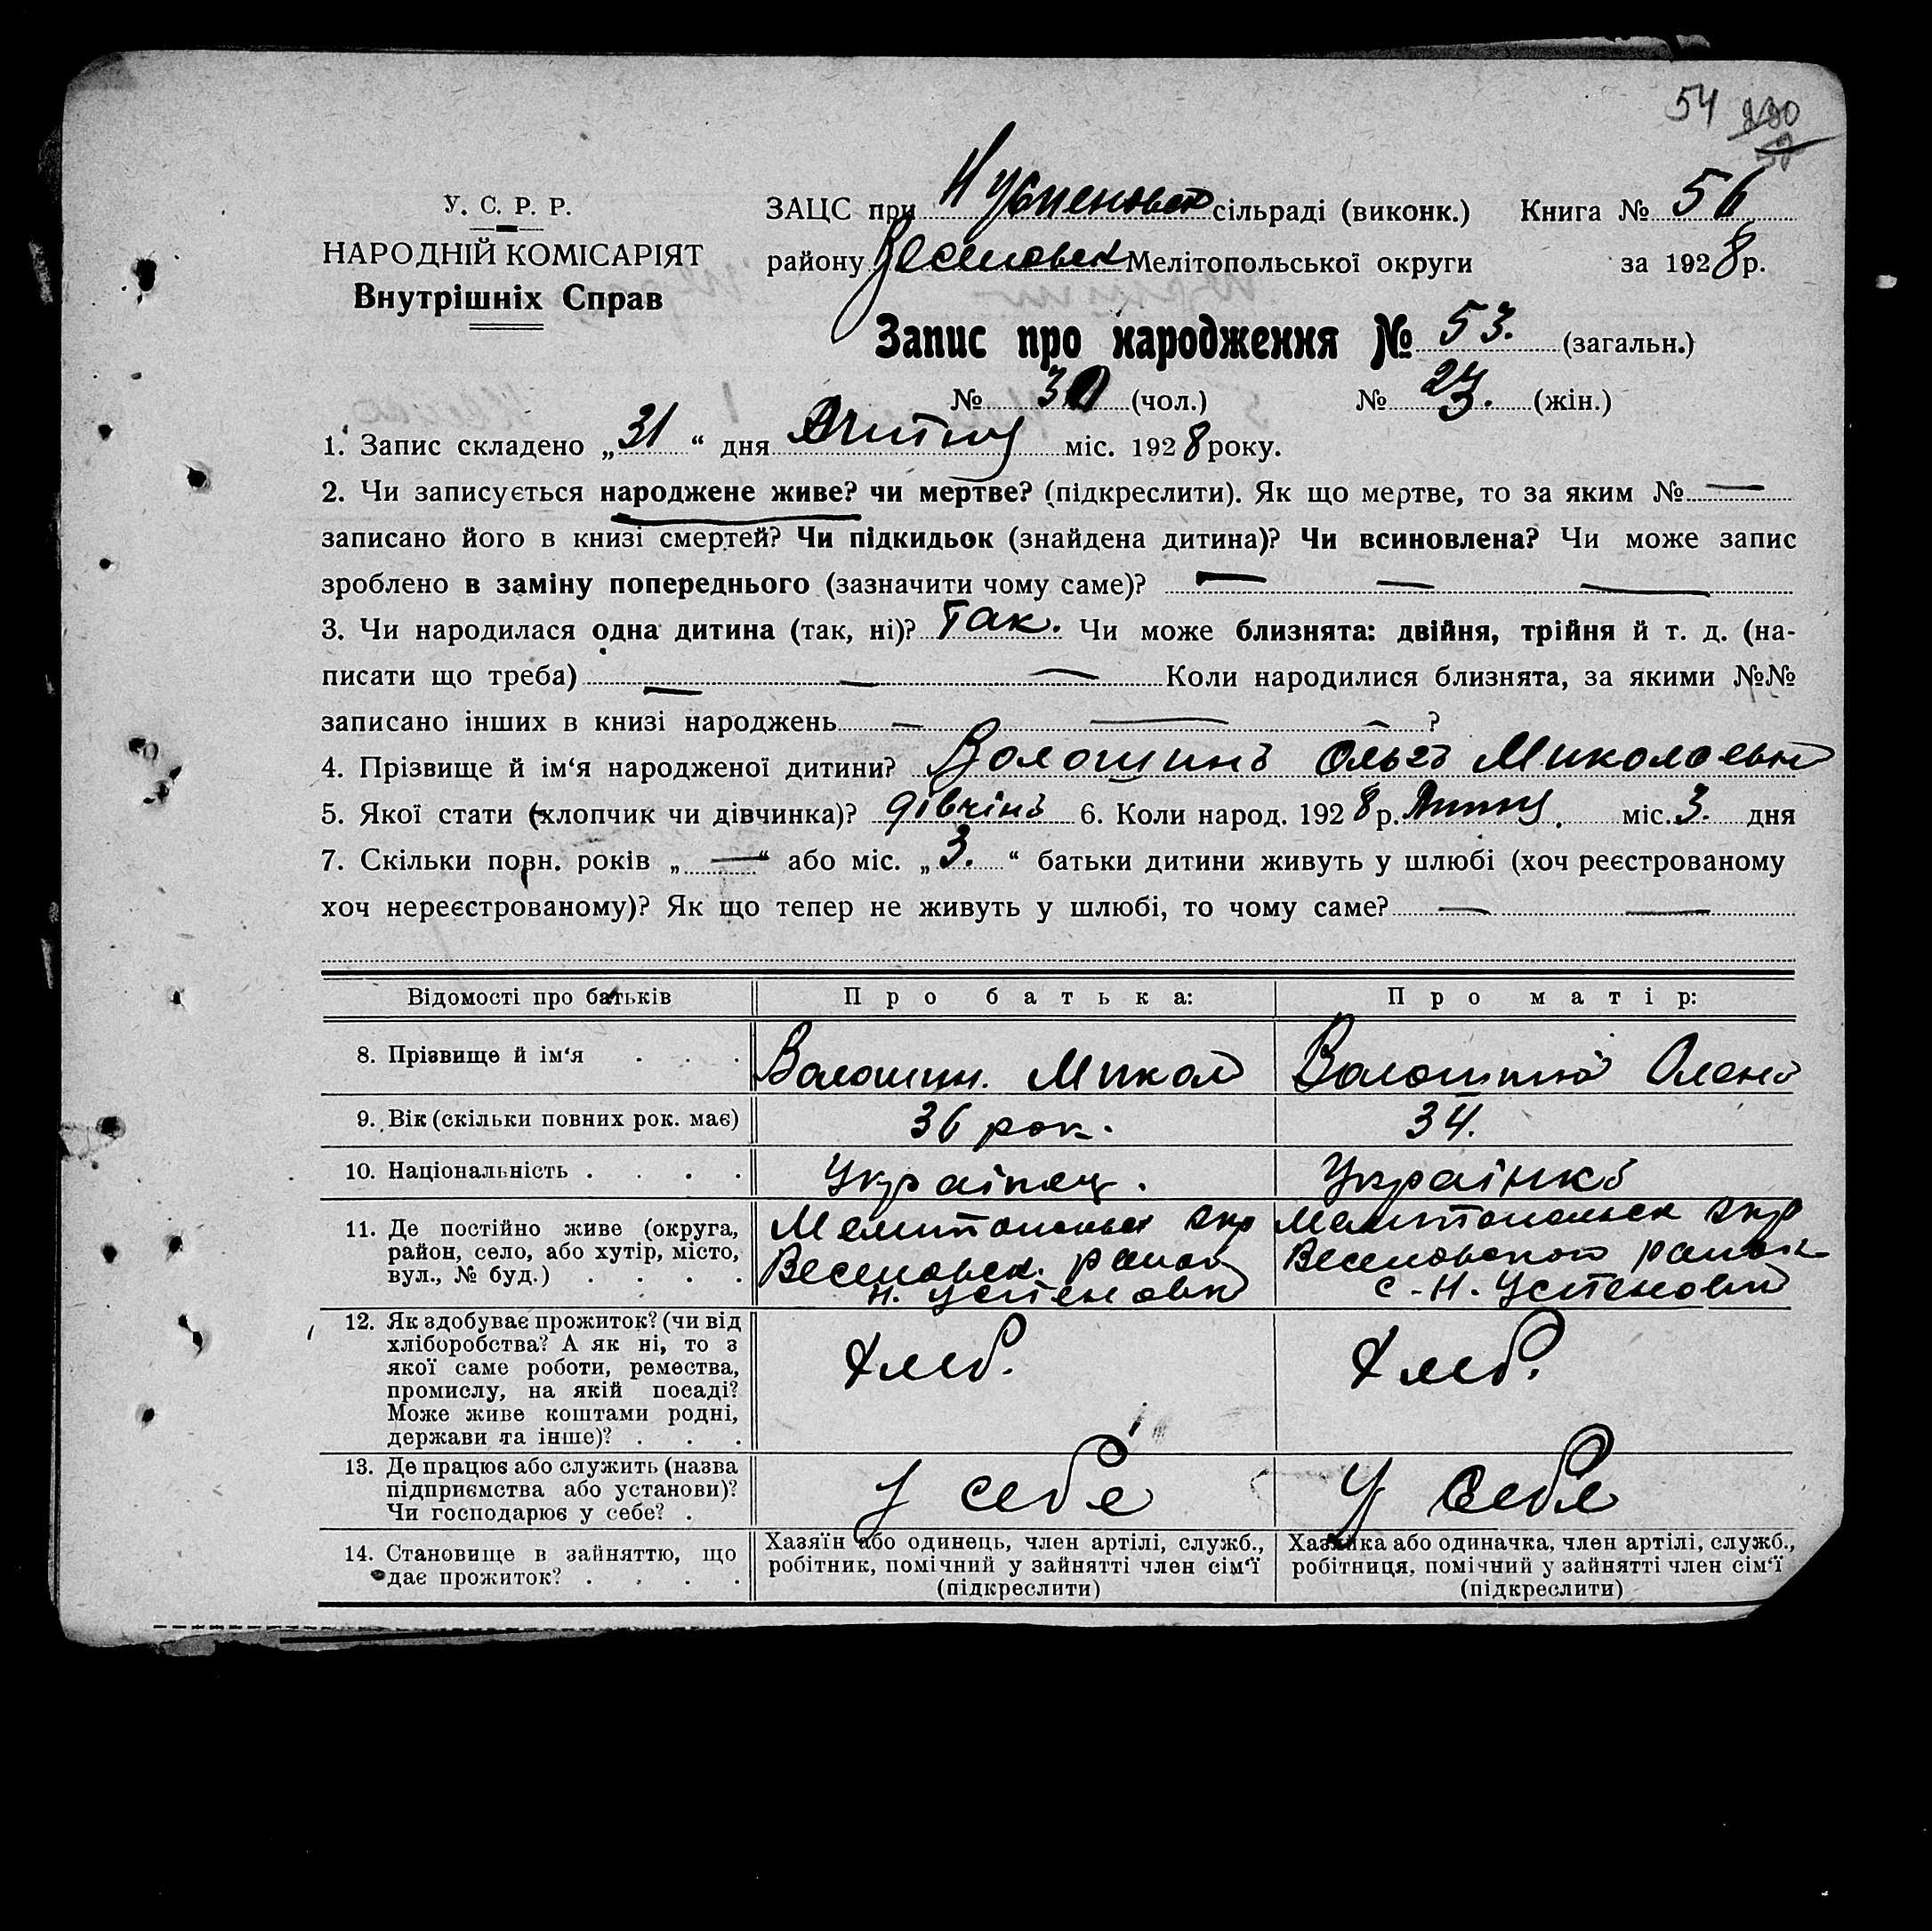 54 230
50
У. С. Р. Р.
НАРОДНІЙ КОМІСАРІЯТ
Внутрішніх Справ
ЗАЦС при Н Успеновск сільраді (виконк.) Книга № 56
району Веселовск Мелітопольської округи за 1928 р.
Запис про народження № 53. (загальн.)
№ 30 (чол.) № 23. (жін.)
1. Запис складено „31“ дня міс. 1928 року.
2. Чи записується народжене живе? чи мертве? (підкреслити). Як що мертве, то за яким № —
записано його в книзі смертей? Чи підкидьок (знайдена дитина)? Чи всиновлена? Чи може запис
зроблено в заміну попереднього (зазначити чому саме)? — — —
3. Чи народилася одна дитина (так, ні)? Так. Чи може близнята: двійня, трійня й т. д. (на-
писати що треба) — — — Коли народилися близнята, за якими №№
записано інших в книзі народжень — — — ?
4. Прізвище й ім‘я народженої дитини? Волошина Ольга Миколаевна
5. Якої стати (хлопчик чи дівчинка)? дівчіна 6. Коли народ. 1928 р. міс. 3. дня
7. Скільки повн. років „ — “ або міс. „ 3. “ батьки дитини живуть у шлюбі (хоч реєстрованому
хоч нереєстрованому)? Як що тепер не живуть у шлюбі, то чому саме? — —
Відомості про батьків Про батька: Про матір:
8. Прізвище й ім‘я . . . Волошин. Микола Волошина Олена
9. Вік (скільки повних рок. має) 36 рок. 34.
10. Національність . . . . Українец. Українка
11. Де постійно живе (округа, район, село, або хутір, місто, вул., № буд.) . . . .
Мелитопольск окр Веселовск. район Н. Успеновка
Мелитопольск окр Веселовского район с - Н. Успеновка
12. Як здобуває прожиток? (чи від хліборобства? А як ні, то з якої саме роботи, ремества, промислу, на якій посаді? Може живе коштами родні, держави та інше)? . . .
Хліб. Хліб.
13. Де працює або служить (назва підприємства або установи)? Чи господарює у себе? .
у себе у себе
14. Становище в зайняттю, що дає прожиток? . . . .
Хазяїн або одинець, член артілі, служб., робітник, помічний у зайнятті член сім‘ї (підкреслити)
Хазяйка або одиначка, член артілі, служб., робітниця, помічний у зайнятті член сім‘ї (підкреслити)